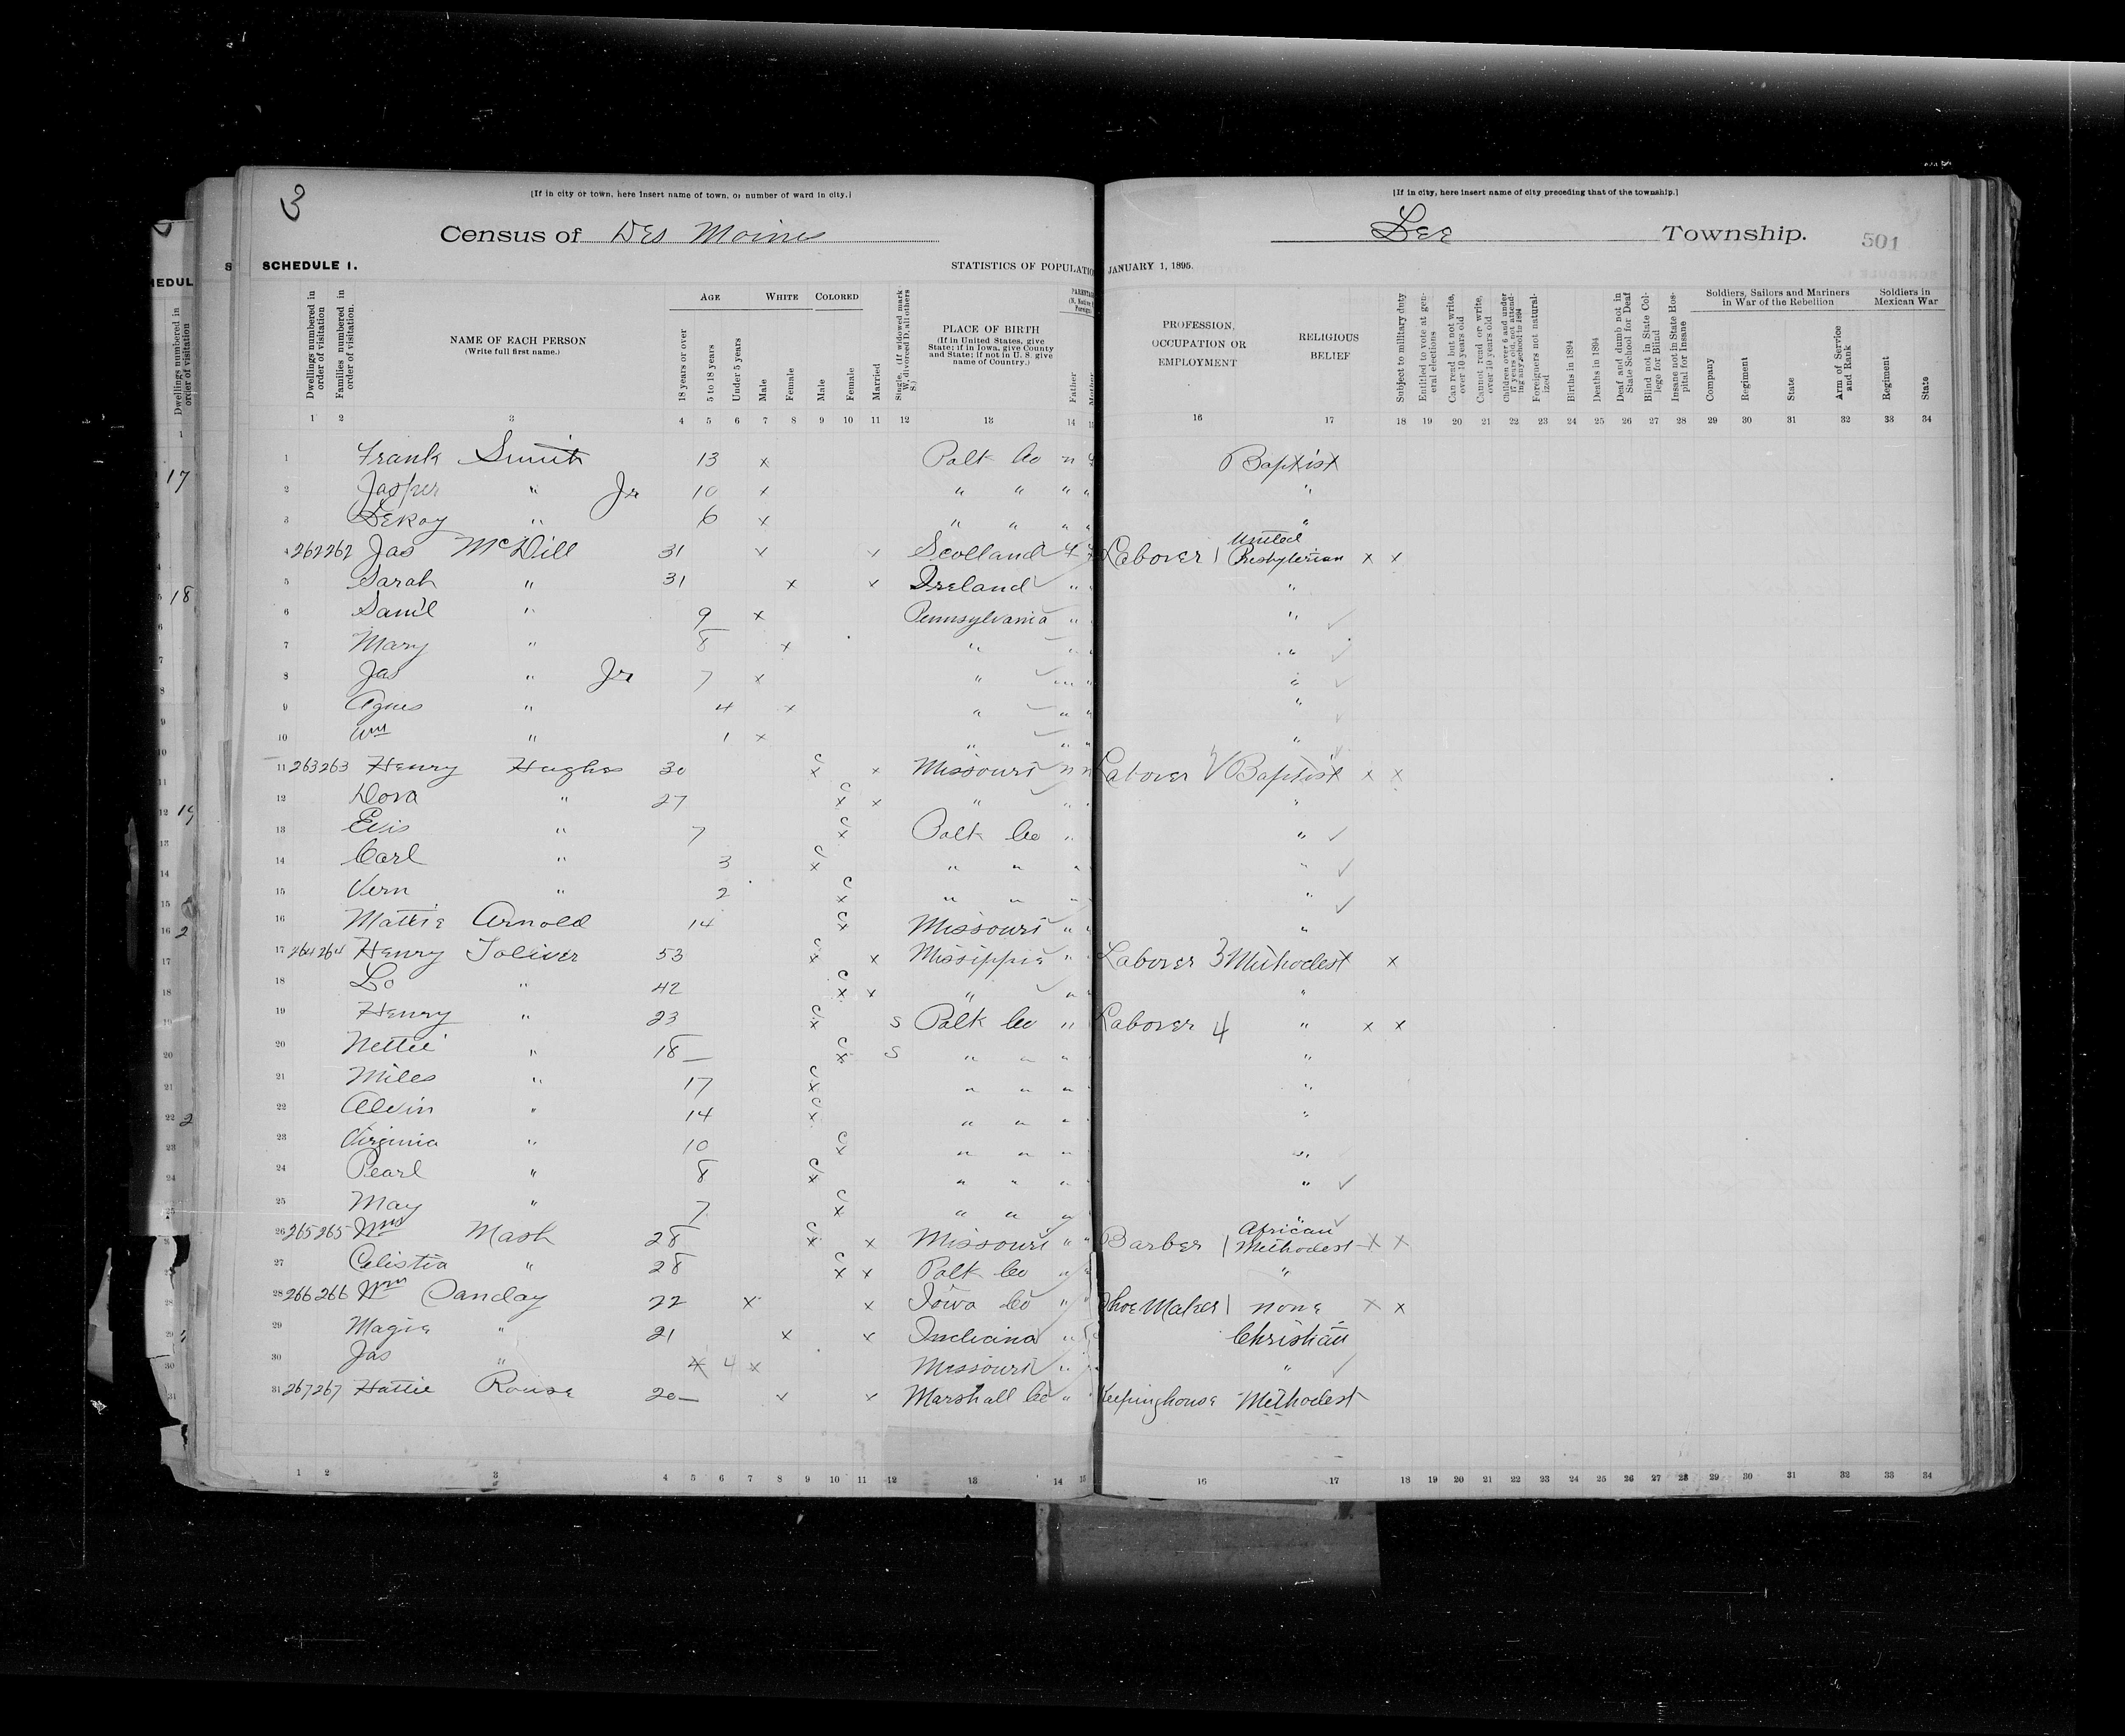 3
[If in city or town, here insert name of town, or number of ward in city.]
[If in city, here insert name of city preceding that of the township.]
Census of Des Moines
Lee Township. 501
SCHEDULE 1. STATISTICS OF POPULATIO JANUARY 1, 1895.
Dwellings numbered in order of visitation
Families numbered in order of visitation.
NAME OF EACH PERSON
(Write full first name.)
AGE
18 years or over
5 to 18 years
Under 5 years
WHITE
Male
Female
COLORED
Male
Female
Married
Single, (If widowed mark W, divorced D, all others S.)
PLACE OF BIRTH
(If in United States, give State; if in Iowa, give County and State; if not in U. S. give name of Country.)
Father
PROFESSION, OCCUPATION OR EMPLOYMENT
RELIGIOUS BELIEF
Subject to military duty
Entitled to vote at general elections
Can read but not write, over 10 years old
Cannot read or write, over 10 years old
Children over 5 and under 17 years old, not attending any school in 1894
Foreigners not naturalized
Births in 1894
Deaths in 1894
Deaf and dumb not in State School for Deaf
Blind not in State College for Blind
Insane not in State Hospital for Insane
Soldiers, Sailors and Mariners in War of the Rebellion
Company
Regiment
State
Arm of Service and Rank
Soldiers in Mexican War
Regiment
State
1 2 3 4 5 6 7 8 9 10 11 12 13 14 16 17 18 19 20 21 22 23 24 25 26 27 28 29 30 31 32 33 34
1 Frank Smith 13 x Polk Co n Baptist
2 Jasper " Jr 10 x " " " " "
3 DeKoy " 6 x " " " " "
4 262 262 Jas McDill 31 x x Scotland f Laborer 1 United Presbyterian x x
5 Sarah " 31 x x Ireland " "
6 Saml " 9 x Pennsylvania " "
7 Mary " 8 x " " "
8 Jas " Jr 7 x " " "
9 Agnes " 4 x " " "
10 Wm " 1 x " " "
11 263 263 Henry Hughes 30 c x x Missouri n n Laborer Baptist x x
12 Dora " 27 c x x " " "
13 " 7 c x Polk Co " "
14 Carl " 3 c x " " " "
15 Vern " 2 c x " " " "
16 Mattie Arnold 14 c x Missouri " "
17 264 264 Henry Toliver 53 c x x Missippie " Laborer 3 Methodest x
18 Lo " 42 c x x " " "
19 Henry " 23 c x S Polk Co " Laborer 4 " x x
20 Nettie " 18 c x S " " " "
21 Miles " 17 c x " " " "
22 Alvin " 14 c x " " " "
23 Virginia " 10 c x " " " "
24 Pearl " 8 c x " " " "
25 May " 7 c x " " " "
26 265 265 Wm Mash 28 c x x Missouri " " Barber 1 African Methodest x x
27 Celistia " 28 c x x Polk Co " "
28 266 266 Wm Canday 22 x x Iowa Co " Shoe Maker 1 none x x
29 Magie " 21 x x Indiana " Christian
30 Jas " 4 x Missouri " "
31 267 267 Hattie Rouse 20 x x Marshall Co " Keepinghouse Methodest
1 2 3 4 5 6 7 8 9 10 11 12 13 14 15 16 17 18 19 20 21 22 23 24 25 26 27 28 29 30 31 32 33 34